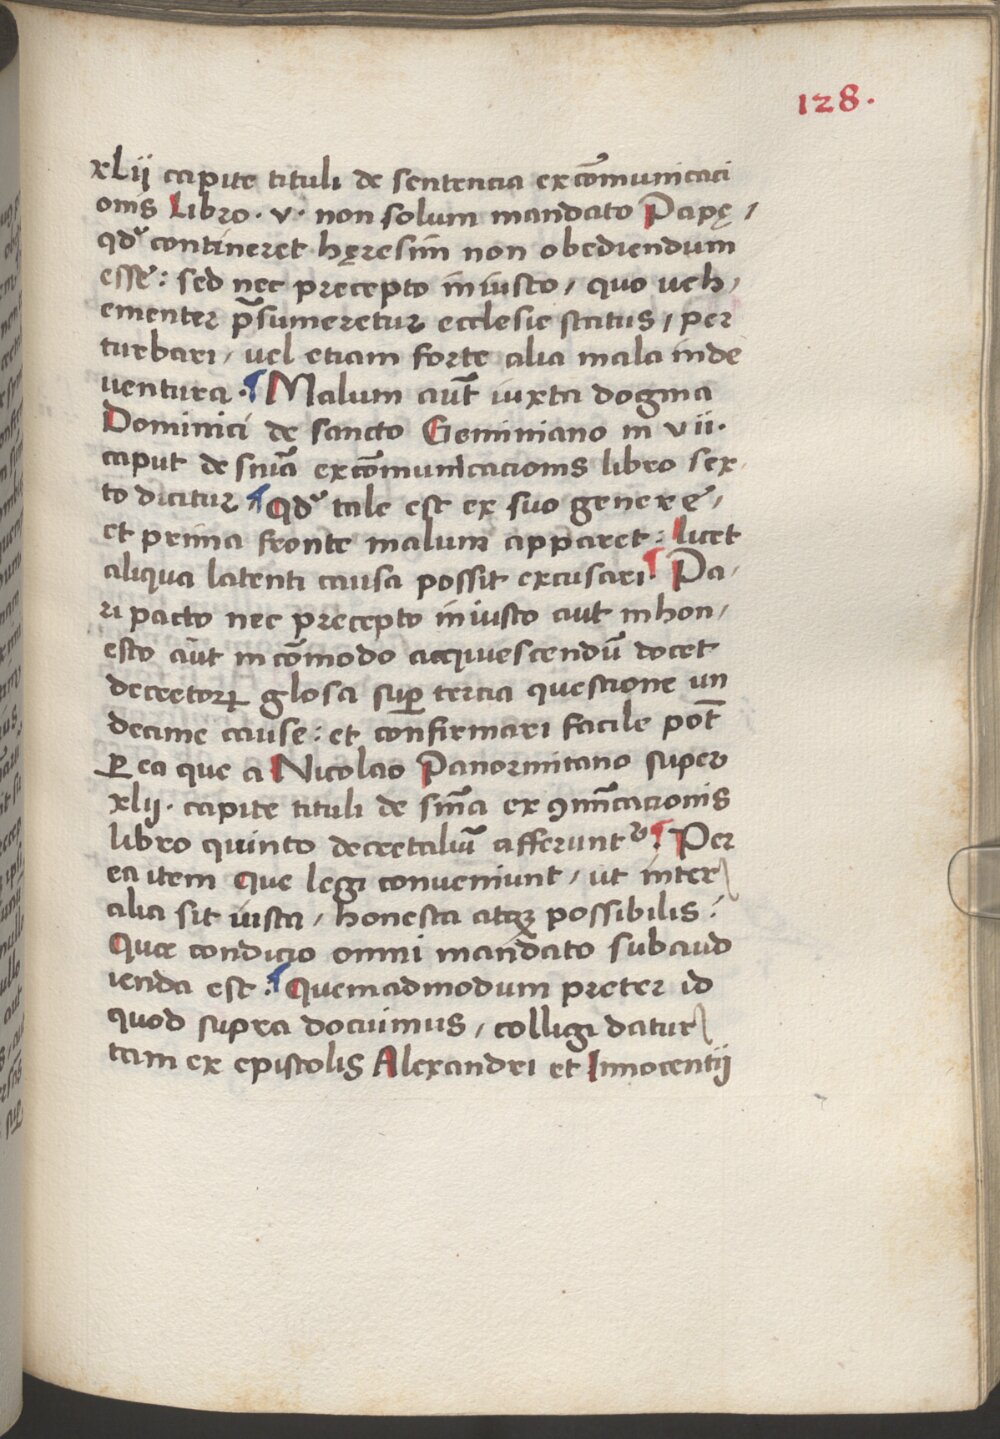 128.
xLij capite tituli de sentencia excōmunicaci
onis Libro · v · non solum mandato Papę /
qdˀ contineret hęresim non obediendum
esse : sed nec precepto iniusto / quo veh /
ementer p̄sumeretur ecclesie status / per
turbari / vel etiam forte alia mala inde
ventura . ¶ Malum aūt iuxta dogma
Dominici de sancto Geminiano in vii ·
caput de snīa excōmunicacionis libro sex /
to dicitur ¶ Qdˀ tale est ex suo genere /
et prima fronte malum apparet : licet
aliqua latenti causa possit excusari ¶ Pa /
ri pacto nec precepto iniusto aut inhon /
esto aūt incōmodo acquiescendū docet
decretorꝝ glosa suꝑ tercia questione un
decime cause : et confirmari facile pōt
ꝑ ea que a Nicolao Panormitano super
xlij · capite tituli de snīa exꝯmn̄icacionis
libro quinto decretaliū afferunt᷑ ¶ Per
ea item que legi conveniunt / ut inter
alia sit iusta / honesta atqꝫ possibilis :
Quæ condicio omni mandato subaud
ienda est : ¶ Quemadmodum preter id
quod supra docuimus / colligi datur
tam ex epistolis Alexandri et Innocentij